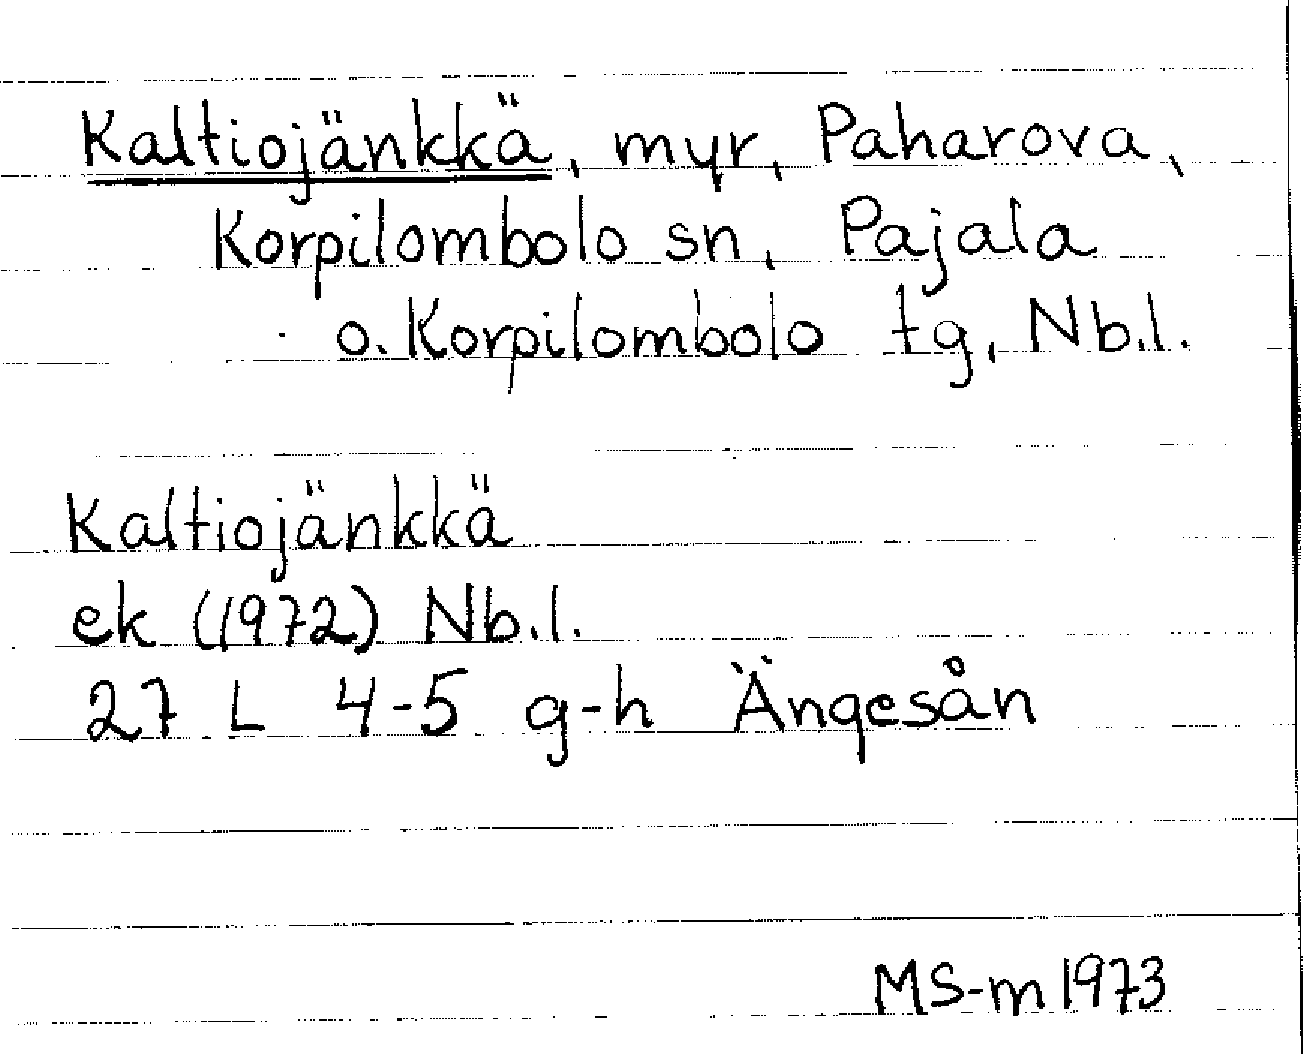 Kaltiojänkkä, myr, Paharova,
Korpilombolo sn, Pajala
o. Korpilombolo tg, Nb.l.
Kaltiojänkkä
ek (1972) Nb.l.
27 L 4-5 g-h Ängesån
MS-m 1973